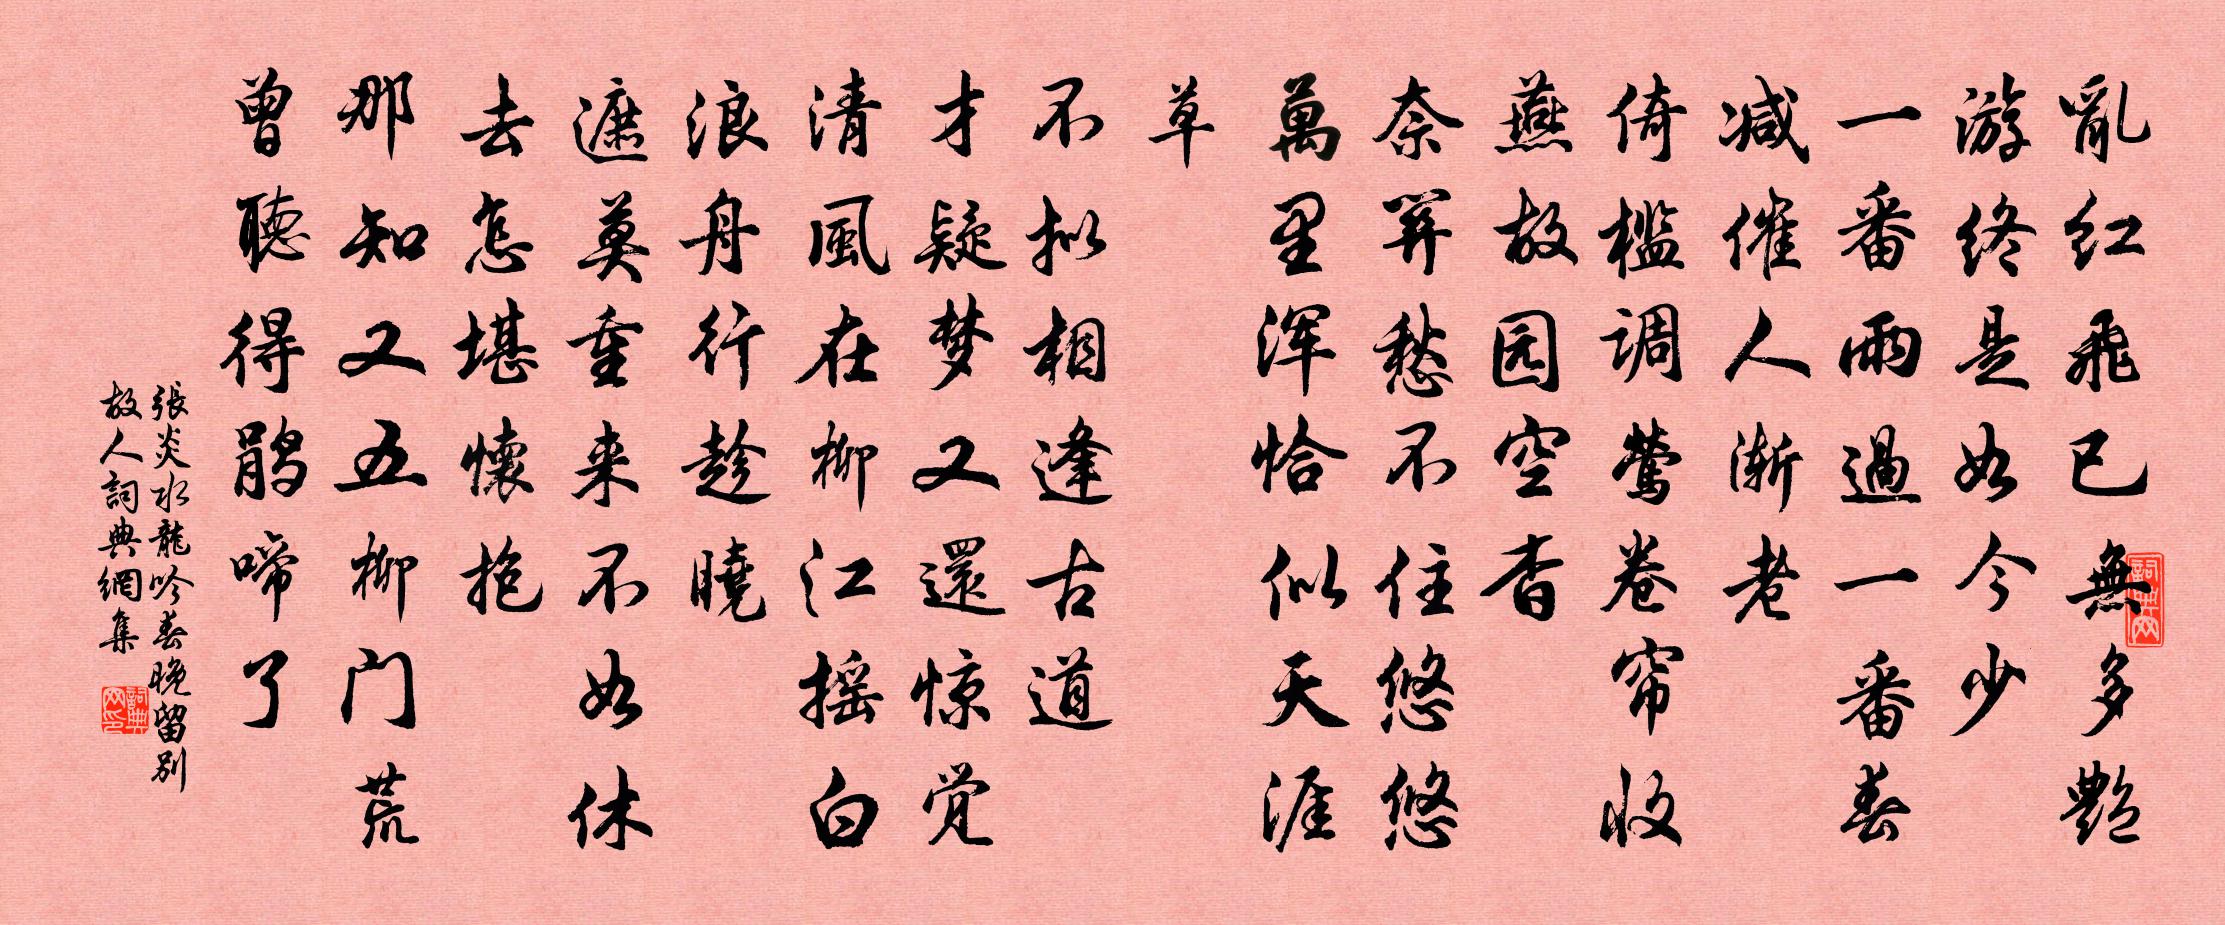 亂红飛已無多艶
游终是如今少
一番雨過一番春
减催人渐老
倚檻调莺卷帘收
燕故园空杳
奈关愁不住悠悠
萬里浑恰似天涯
草
不拟相逢古道
才疑梦又還惊觉
清風在柳江摇白
浪舟行趁曉
遮莫重来不如休
去怎堪懷抱
那知又五柳门荒
曾聽得鹃啼了
張炎水龍吟春晚留别
故人詞典網集
詞典网
詞典网印